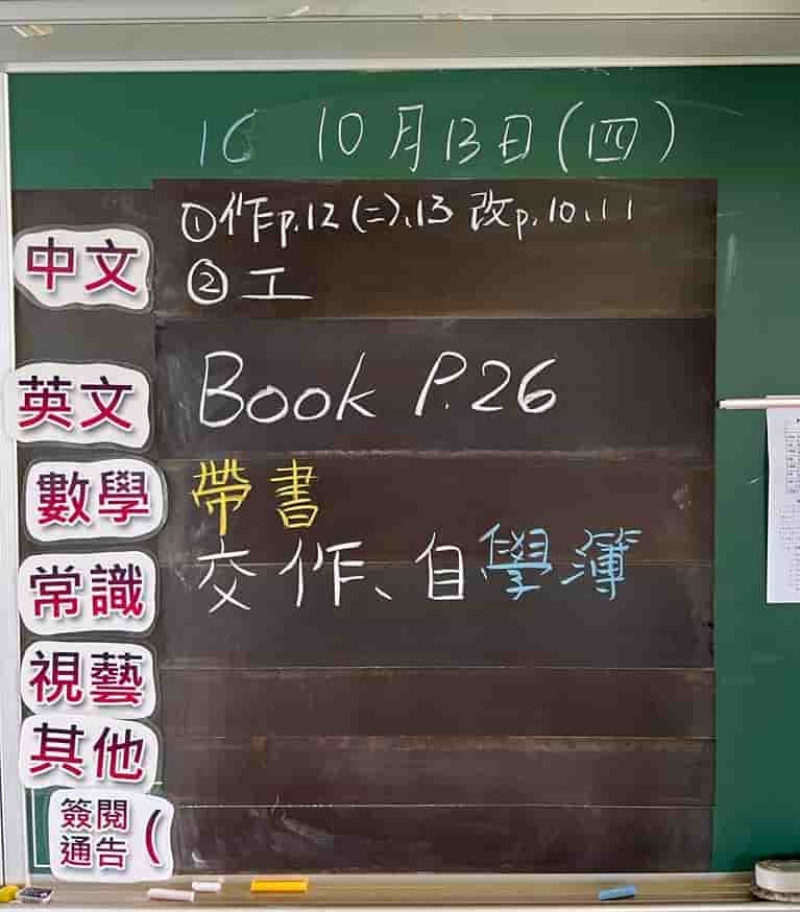 16 10月13日(四)
中文 ①作p.12(二)、13 改p.10、11
②工
英文 Book P.26
數學 帶書
常識 交作、自學簿
視藝
其他
簽閱通告(